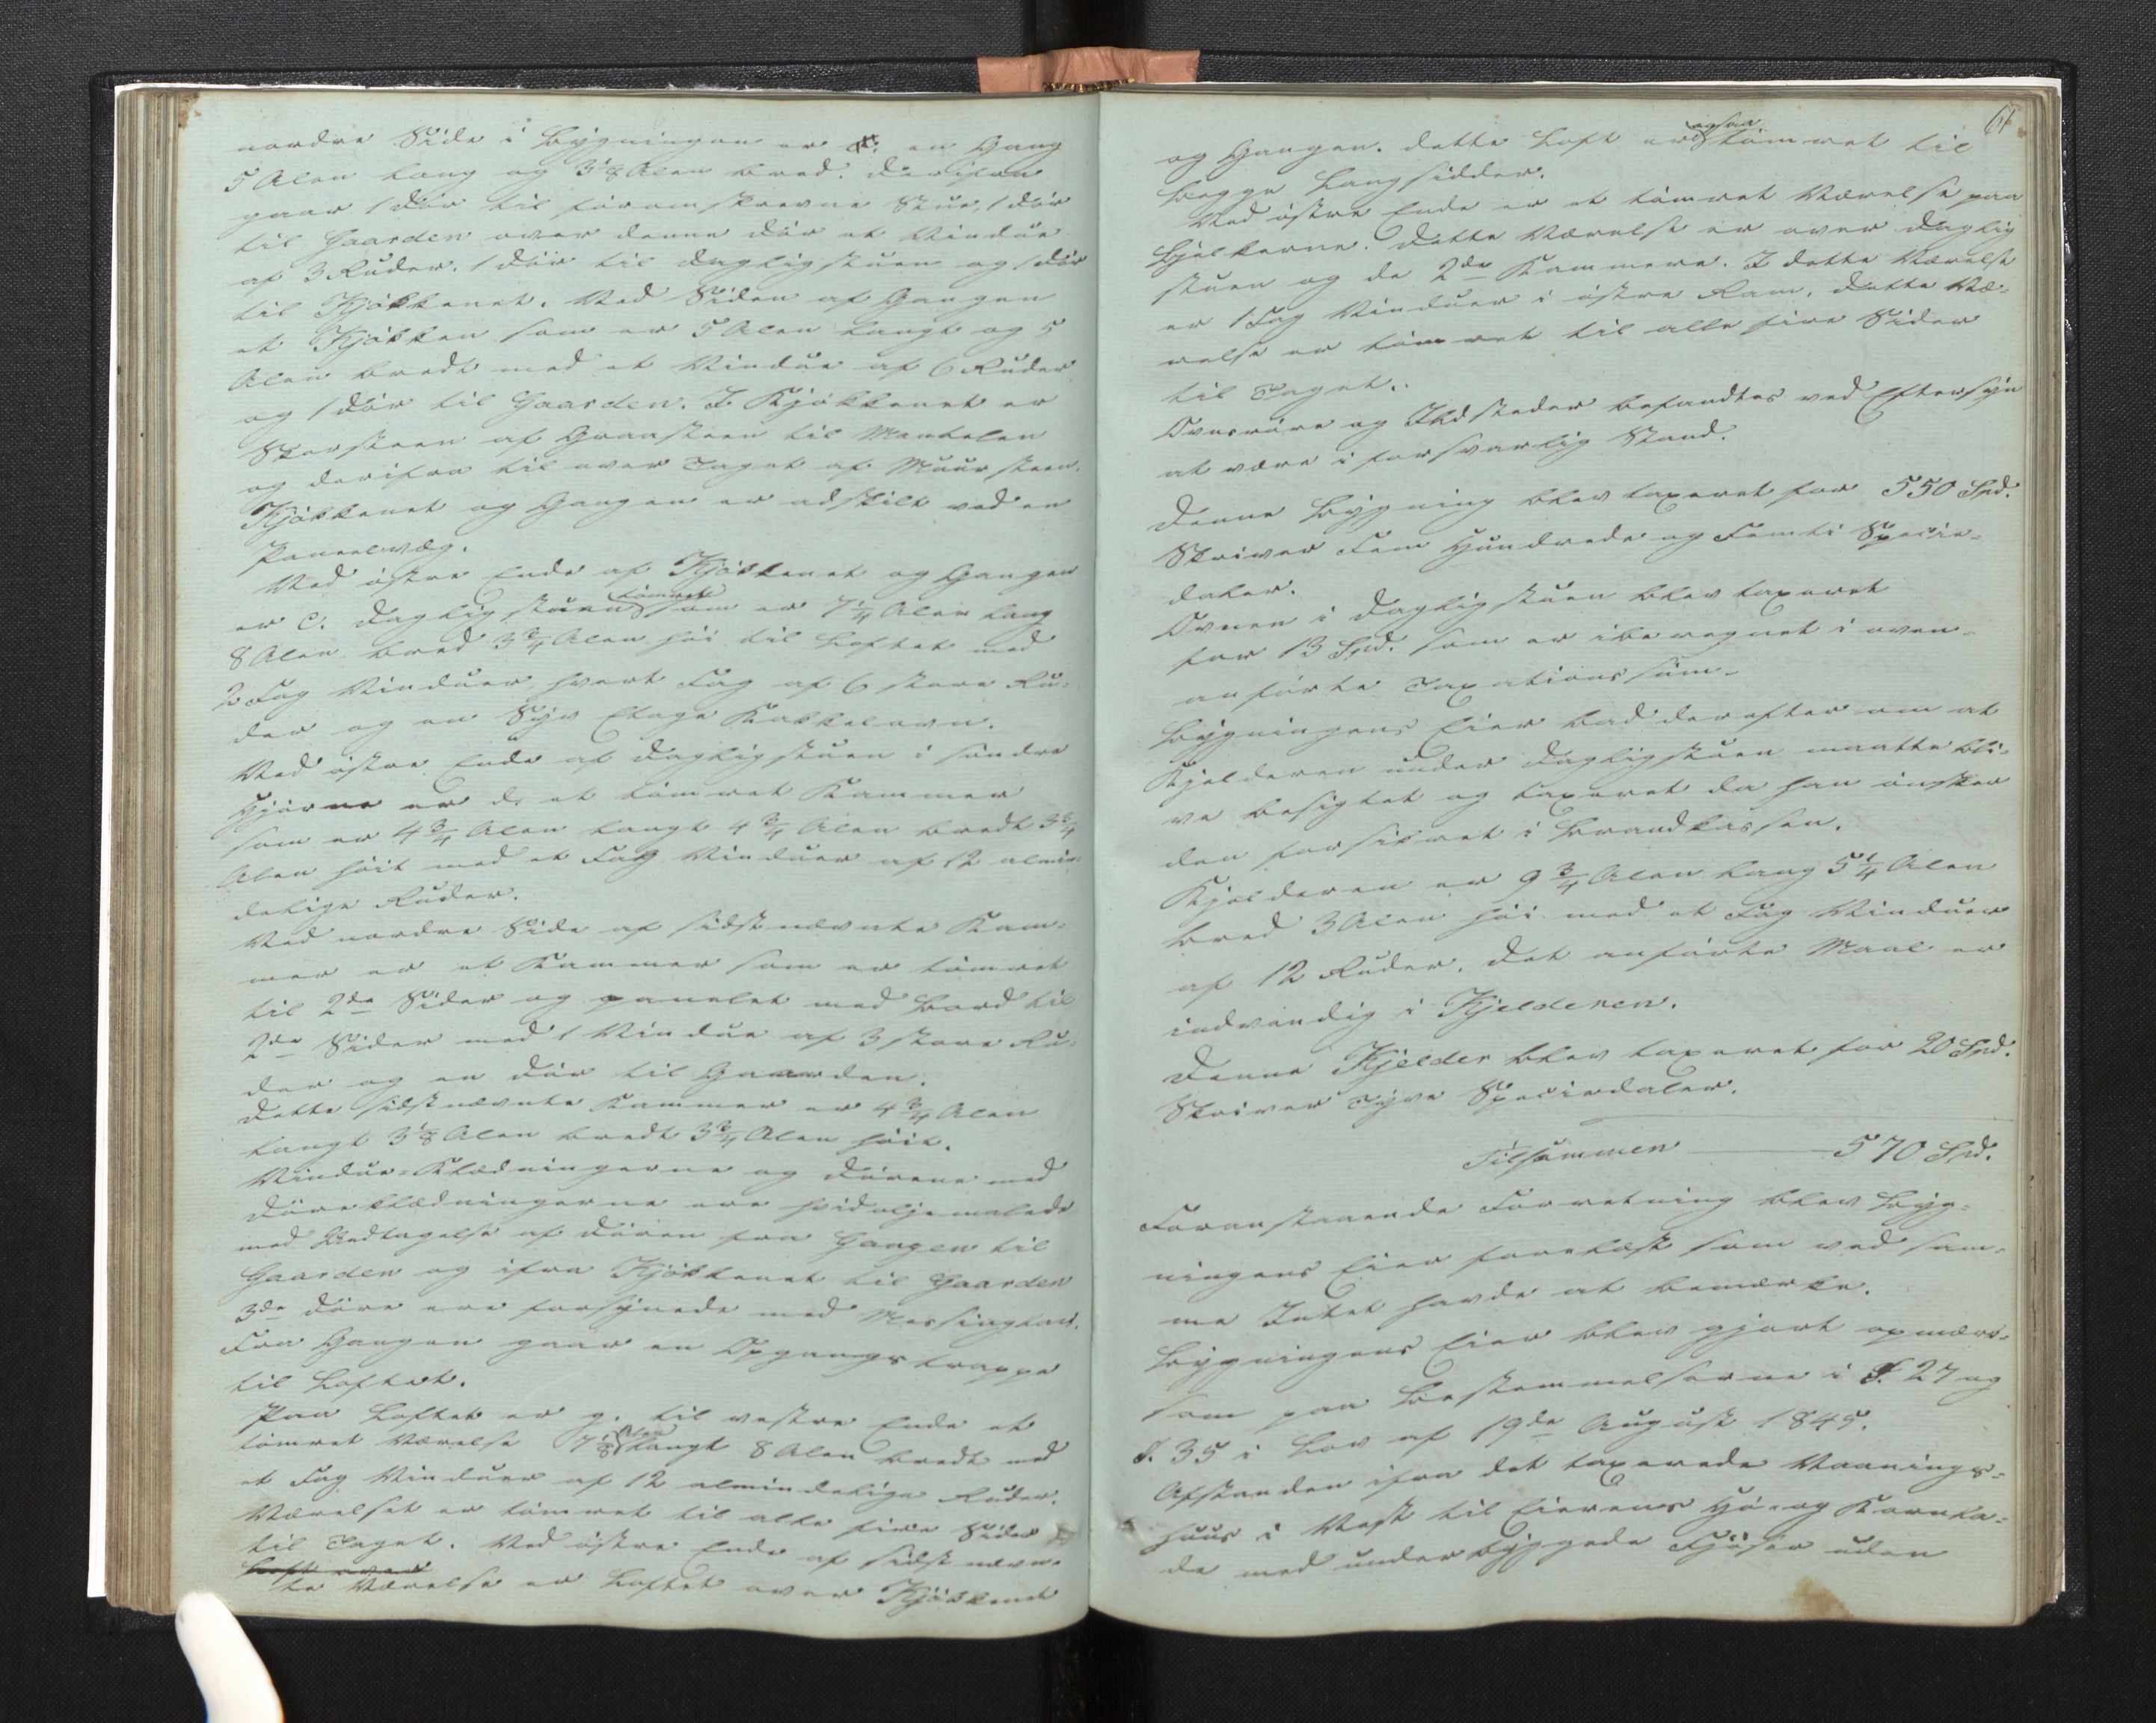 nordre Side i Bygningen er b. en Gang
5 Alen lang og 3 1/8 Alen bred. Derifra
gaar 1 Dör til foromskrevne Stue, 1 Dör
til Gaarden over denne Dör et Vindue
af 3 Ruder. 1 Dör til Dagligstuen og 1 Dör
til Kjökkenet. Ved Siden af Gangen
et Kjökken som er 5 Alen langt og 5
Alen bredt med et Vindue af 6 Ruder
og 1 Dör til Gaarden. I Kjökkenet er
Skorsteen af Graasteen til Mantelen
og derifra til over Taget af Muursteen.
Kjökkenet og Gangen er adskilt ved en
Paneelvæg.
Ved östre Ende af Kjökkenet og Gangen
er c. Dagligstuen tömret som er 7 1/4 Alen lang
8 Alen bred 3 3/4 Alen höi til Loftet med
2 Fag Vinduer hvert Fag af 6 store Ru-
der og en Syv Etage Kakkelovn.
Ved östre Ende af Dagligstuen i söndre
Hjörne er d. et tömret Kammer
som er 4 3/4 Alen langt 4 3/4 Alen bredt 3 3/4
Alen höit med et Fag Vinduer af 12 almin-
delige Ruder.
Ved nordre Side af sidstnævnte Kam-
mer er et Kammer som er tömret
til 2de Sider og panelet med Bord til
2de Sider med 1 Vindue af 3 store Ru-
der og en Dör til Gaarden.
Dette sidstnævnte Kammer er 4 3/4 Alen
langt 3 1/8 Alen bredt 3 3/4 Alen höit.
Vindue-Klædningerne og Dörene med
Döreklædningerne ere hvidoljemalede
med Undtagelse af Dören fra Gangen til
Gaarden og ifra Kjökkenet til Gaarden
3de Döre ere forsynede med Messinglaas.
Fra Gangen gaar en Opgangstrappe
til Loftet.
Paa Loftet er g. til vestre Ende et
tömret Værelse 7 1/8 Alen langt 8 Alen bredt med
et Fag Vinduer af 12 almindelige Ruder.
Værelset er tömret til alle fire Sider
til Taget. Ved östre Ende af sidstnævn-
Loft over
te Værelse er Loftet over Kjökkenet
61
og Gangen. Dette Loft er ogsaa tömret til
begge Langsidder.
Ved östre Ende er et tömret Værelse paa
Bjelkerne. Dette Værelse er over Daglig
stuen og de 2de Kammere. I dette Værelse
er 1 Fag Vinduer i östre Ram. Dette Væ-
relse er tömret til alle fire Sider
til Taget.
Ovnsröre og Ildsteder befandtes ved Eftersyn
at være i forsvarlig Stand.
Denne Bygning blev taxeret for 550 Spd.
Skriver Fem Hundrede og Femti Specie-
daler.
Ovnen i Dagligstuen blev taxeret
for 13 Spd. som er iberegnet i oven-
anförte Taxationssum.
Bygningens Eier bad derefter om at
Kjelderen under Dagligstuen maatte bli-
ve besigtet og taxeret da han önsker
den forsikret i Brandkassen.
Kjelderen er 9 3/4 Alen lang 5 1/4 Alen
bred 3 Alen höi med et Fag Vinduer
af 12 Ruder. Det anförte Maal er
indvendig i Kjelderen.
Denne Kjelder blev taxeret for 20 Spd.
Skriver Tyve Speciedaler.
Tilsammen 570 Spd.
Foranstaaende Forretning blev Byg-
ningens Eier forelæst som ved sam-
me Intet havde at bemærke.
Bygningens Eier blev gjort opmærk-
som paa Bestemmelserne i §. 27 og
§. 35 i Lov af 19de August 1845.
Afstanden ifra det taxerede Vaanings-
huus i Vest til Eierens Hö- og Kornla-
de med underbyggede Fjöser uden